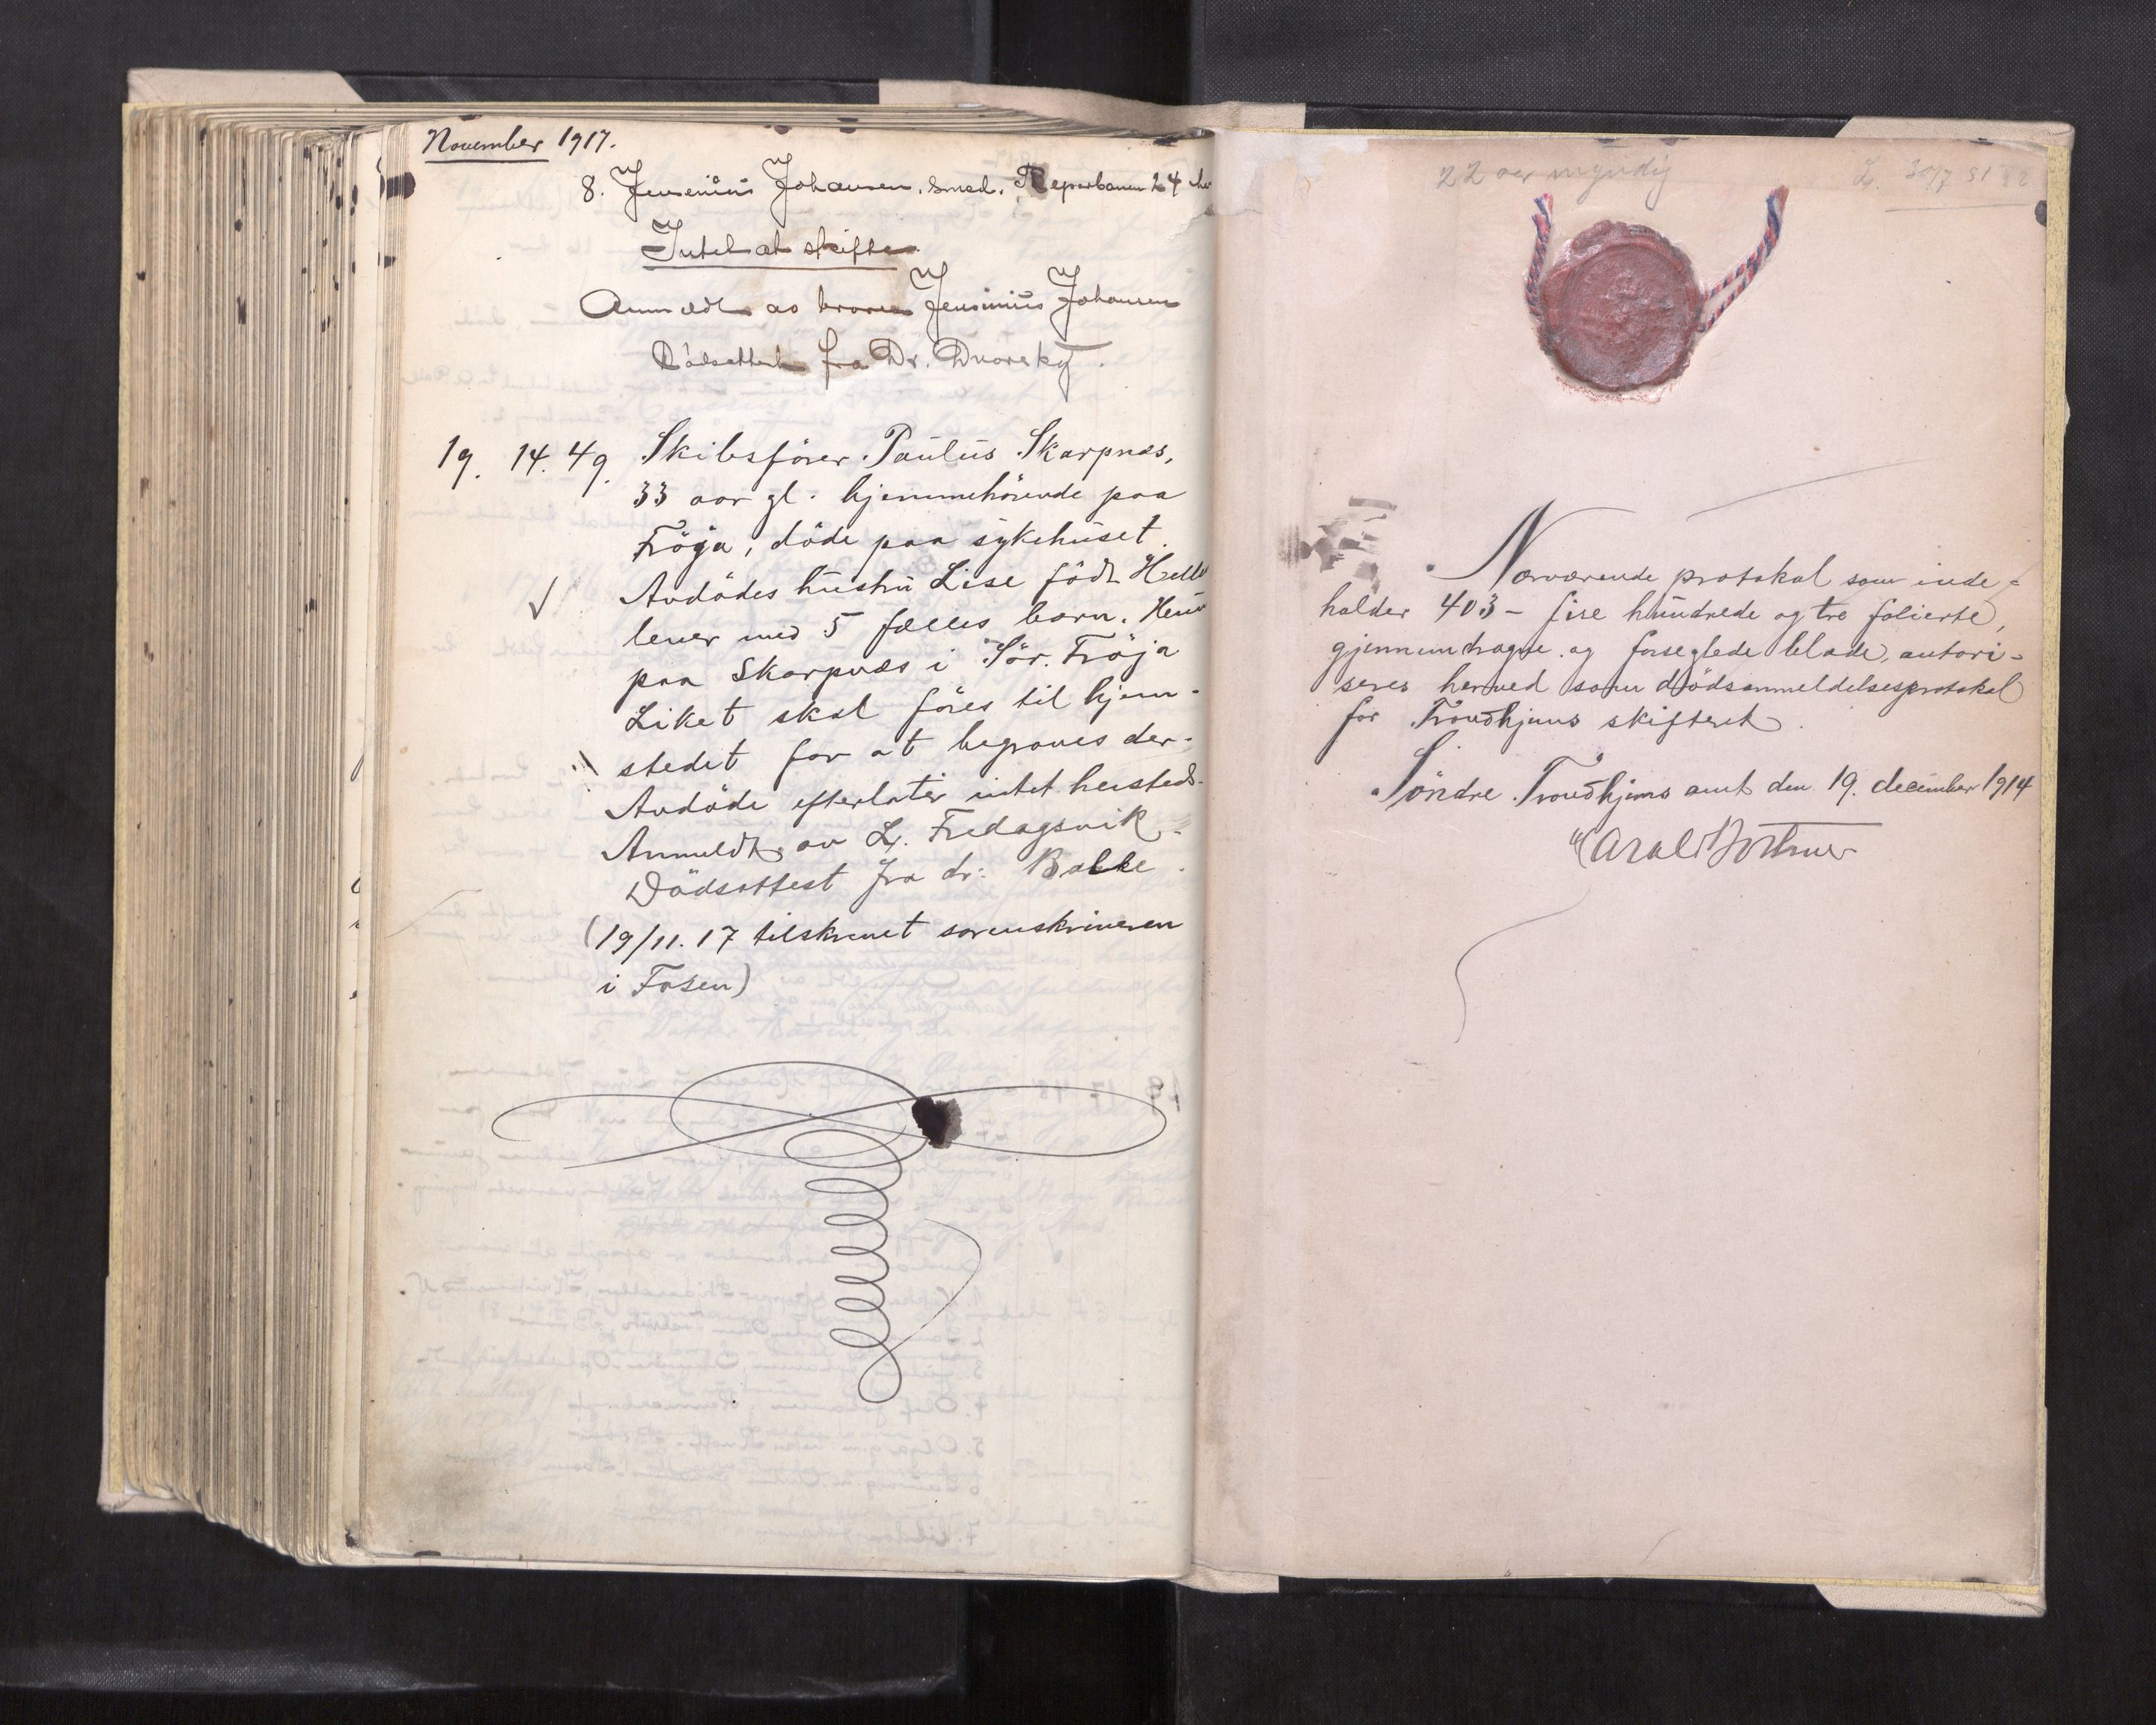 November 1917.
8. Jensenius Johansen, smed, Reperbanen 24 her
Intet at skifte
Anmeldt av broren Jensinius Johansen
Dödsattest fra Dr. Dvorsky.
19. 14. 49. Skibsförer Paulus Skarpnes,
33 aar gl. hjemmehörende paa
Fröya, döde paa sykehuset.
Avdödes hustru Lise födt
lever med 5 fælles barn. Hun
paa Skarpnæs i Sör. Fröja
Liket skal föres til hjem-
stedet for at begraves der-
Avdöde efterlater intet hersteds.
Anmeldt av L. Fredagsvik.
Dödsattest fra dr. Balke.
(19/11. 17 tilskrevet sorenskriveren
i Fosen)
22 aar myndig
Nærværende protokol som inde-
holder 403 - fire hundrede og tre folierte,
gjennemdragne og forseglede blade, autori-
seres herved som dödsanmeldelsesprotokol
for Trondhjems skifteret.
Söndre Trondhjems amt den 19. december 1914
Harald Bothner